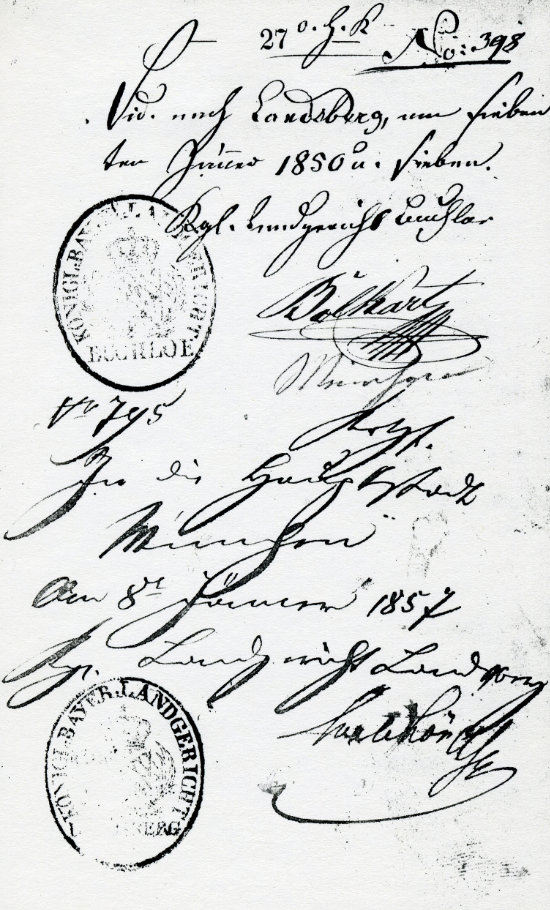 27 o. H. K No: 398
Vid. nach Landsberg, am sieben
ten Jänner 1850 u. sieben.
Kgl. Landgericht Buchloe
KÖNIGL. BAYER. LANDGERICHT
BUCHLOE
Volkart
No 795
In die Hauptstadt
München
Am 8t Jänner 1857
Kg. Landgericht Landsberg
KÖNIGL. BAYER. LANDGERICHT